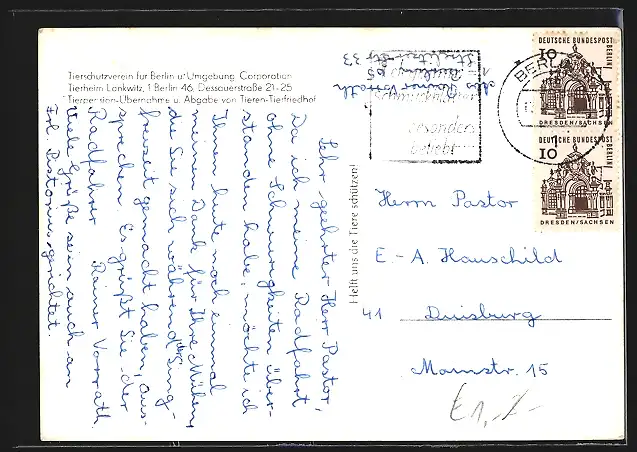 Tierschutzverein für Berlin u. Umgebung Corporation
Tierheim Lankwitz, 1 Berlin 46, Dessauerstraße 21-25
Tierpension-Übernahme u. Abgabe von Tieren-Tierfriedhof
Sehr geehrter Herr Pastor,
Da ich meine Radfahrt
ohne Schwierigkeiten über-
standen habe, möchte ich
Ihnen heute noch einmal
meinen Dank für Ihre Mühen,
die Sie sich während
freizeit gemacht haben, aus-
sprechen. Es grüßt Sie der
Radfahrer Rainer Vorrath
Viele Grüße seien auch an
Frl. Pastorin gerichtet.
Helft uns die Tiere schützen!
Abs. Rainer Vorrath
1 Berlin 65
Str. 33
besonders
beliebt
BERLIN
10
DEUTSCHE BUNDESPOST
BERLIN
DRESDEN/SACHSEN
10
DEUTSCHE BUNDESPOST
BERLIN
DRESDEN/SACHSEN
Herrn Pastor
E.-A. Hauschild
41 Duisburg
Mainstr. 15
€1,-